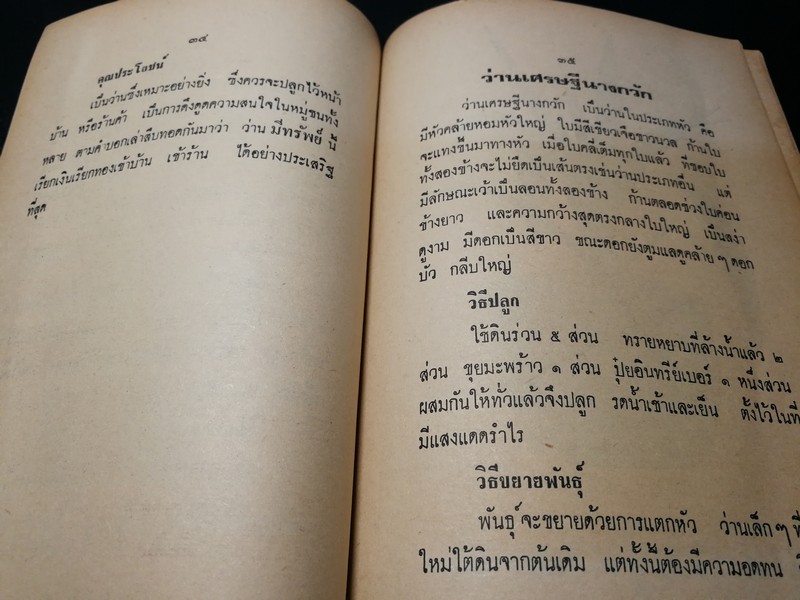 ๓๔
คุณประโยชน์
เป็นว่านซึ่งเหมาะอย่างยิ่ง ซึ่งควรจะปลูกไว้หน้า
บ้าน หรือร้านค้า เป็นการดึงดูดความสนใจในหมู่ชนทั้ง
หลาย ตามคำบอกเล่าสืบทอดกันมาว่า ว่าน มีทรัพย์ นี้
เรียกเงินเรียกทองเข้าบ้าน เข้าร้าน ได้อย่างประเสริฐ
ที่สุด
๓๕
ว่านเศรษฐีนางกวัก
ว่านเศรษฐีนางกวัก เป็นว่านในประเภทหัว คือ
มีหัวคล้ายหอมหัวใหญ่ ใบมีสีเขียวเจือขาวนวล ก้านใบ
จะแทงขึ้นมาทางหัว เมื่อใบคลี่เต็มทุกใบแล้ว ที่ขอบใบ
ทั้งสองข้างจะไม่ยืดเป็นเส้นตรงเช่นว่านประเภทอื่น แต่
มีลักษณะเว้าเป็นลอนทั้งสองข้าง ก้านตลอดช่วงใบค่อน
ข้างยาว และความกว้างสุดตรงกลางใบใหญ่ เป็นสง่า
ดูงาม มีดอกเป็นสีขาว ขณะดอกยังตูมแลดูคล้าย ๆ ดอก
บัว กลีบใหญ่
วิธีปลูก
ใช้ดินร่วน ๕ ส่วน ทรายหยาบที่ล้างน้ำแล้ว ๒
ส่วน ขุยมะพร้าว ๑ ส่วน ปุ๋ยอินทรีย์เบอร์ ๑ หนึ่งส่วน
ผสมกันให้ทั่วแล้วจึงปลูก รดน้ำเช้าและเย็น ตั้งไว้ในที่
มีแสงแดดรำไร
วิธีขยายพันธุ์
พันธุ์จะขยายด้วยการแตกหัว ว่านเล็ก ๆ ที่
ใหม่ใต้ดินจากต้นเดิม แต่ทั้งนี้ต้องมีความอดทน